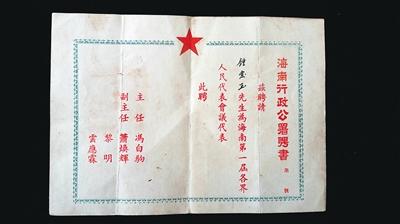 海南行政公署聘書
第 號
茲聘請
先生為海南第一屆各界
人民代表會議代表
此聘
主任 馮白駒
副主任 蕭煥輝
黎明
雲應霖